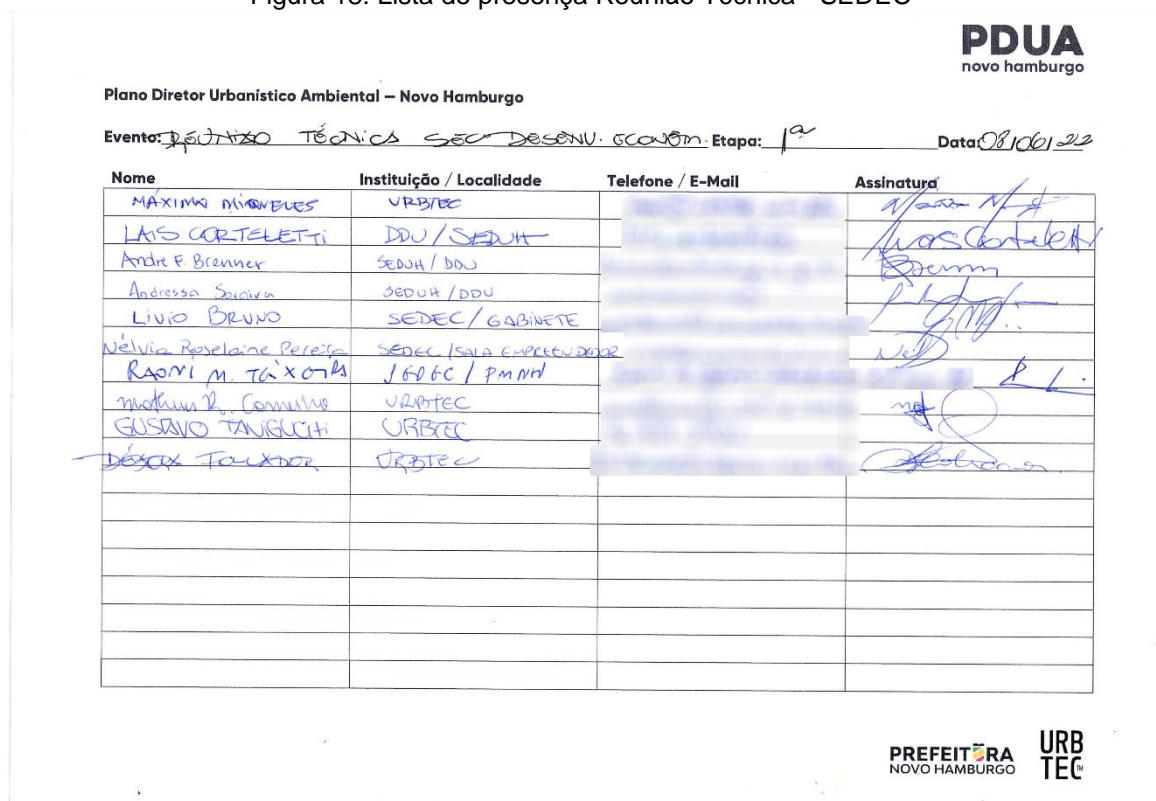 Figura 18: Lista de presença Reunião Técnica - SEDEC
PDUA
novo hamburgo
Plano Diretor Urbanístico Ambiental – Novo Hamburgo
Evento: REUNIÃO TÉCNICA SEC DESENV. ECONÔM. Etapa: 1ª Data: 08/06/22
Nome Instituição / Localidade Telefone / E-Mail Assinatura
MÁXIMO MIQUELES URBTEC
LAIS CORTELETTI DDU / SEDUH Lais Corteletti
Andre F. Brenner SEDUH / DDU Brenn
Andressa Saraiva SEDUH / DDU
LIVIO BRUNO SEDEC / GABINETE
Nélvia Roselaine Pereira SEDEC / SALA EMPREENDEDOR
RAONI M. SEDEC / PMNH
Matheus R. URBTEC
GUSTAVO TANIGUCHI URBTEC
URBTEC
PREFEITURA
NOVO HAMBURGO
URB
TEC